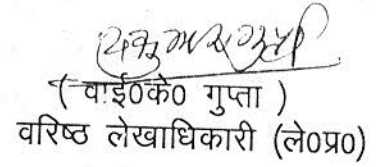 ( वाई०के० गुप्ता )
वरिष्ठ लेखाधिकारी (ले०प्र०)